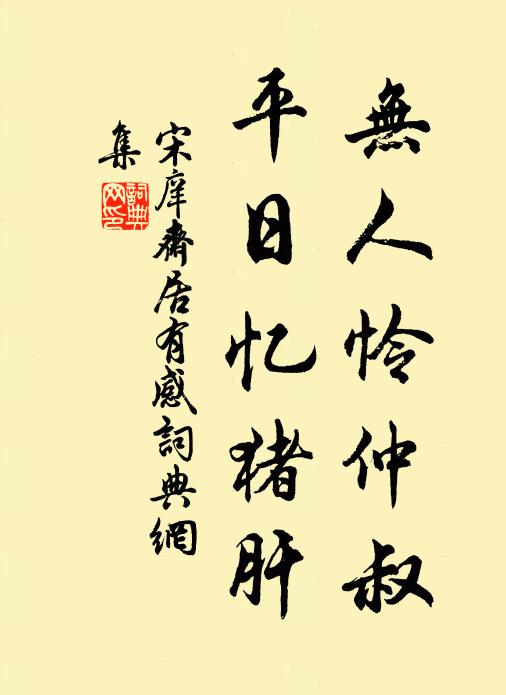 無人怜仲叔
平日忆猪肝
宋庠齋居有感詞典網
集
詞典
网印